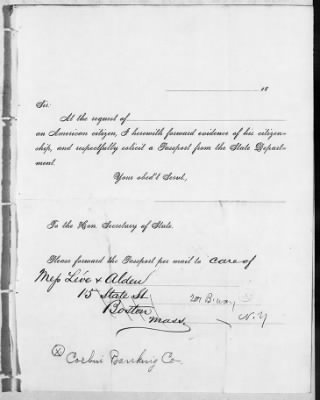 18
Sir:
At the request of
an American citizen, I herewith forward evidence of his citizen-
ship, and respectfully solicit a Passport from the State Depart-
ment.
Your obed't Servt,
To the Hon. Secretary of State.
Please forward the Passport per mail to care of
Mess Léve & Alden
15 State St. 207 B.way
Boston N.Y
Mass.
Corbin Banking Co.